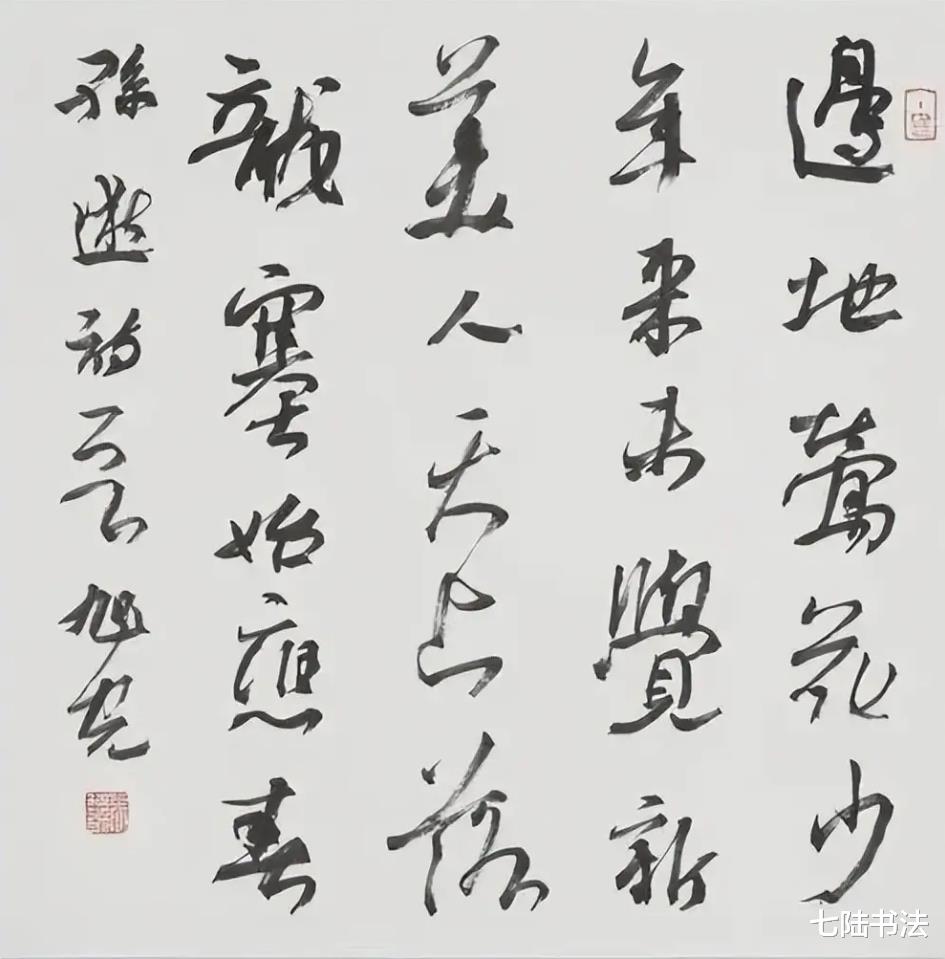 邊地鶯花少
年来未覺新
美人天上落
龍塞始應春
孫逖詩一首 旭光
七陆书法